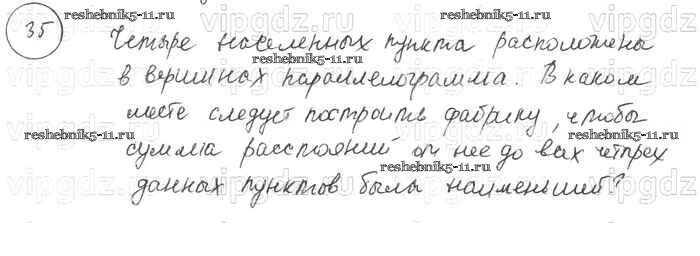 reshebnik5-11.ru
35 Четыре населенных пункта расположены
reshebnik5-11.ru
в вершинах параллелограмма. В каком
месте следует построить фабрику, чтобы
reshebnik5-11.ru reshebnik5-11.ru
сумма расстояний от нее до всех четырех
reshebnik5-11.ru
данных пунктов была наименьшей?
reshebnik5-11.ru
vipgdz vipgdz vipgdz